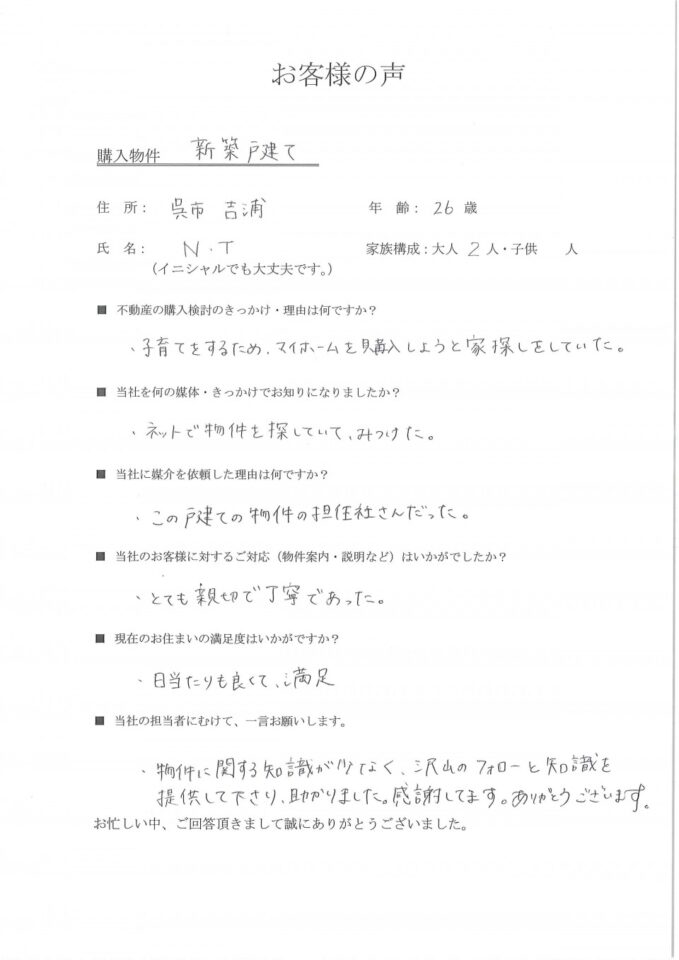 お客様の声
購入物件 新築戸建て
住 所： 呉市 吉浦 年 齢： 26 歳
氏 名： N.T 家族構成：大人 2 人・子供 人
（イニシャルでも大丈夫です。）
■ 不動産の購入検討のきっかけ・理由は何ですか？
、子育てをするため、マイホームを購入しようと家探しをしていた。
■ 当社を何の媒体・きっかけでお知りになりましたか？
、ネットで物件を探していて、みつけた。
■ 当社に媒介を依頼した理由は何ですか？
、この戸建ての物件の担任社さんだった。
■ 当社のお客様に対するご対応（物件案内・説明など）はいかがでしたか？
、とても親切で丁寧であった。
■ 現在のお住まいの満足度はいかがですか？
、日当たりも良くて、満足
■ 当社の担当者にむけて、一言お願いします。
、物件に関する知識が少なく、沢山のフォローと知識を
提供して下さり、助かりました。感謝してます。ありがとうございます。
お忙しい中、ご回答頂きまして誠にありがとうございました。